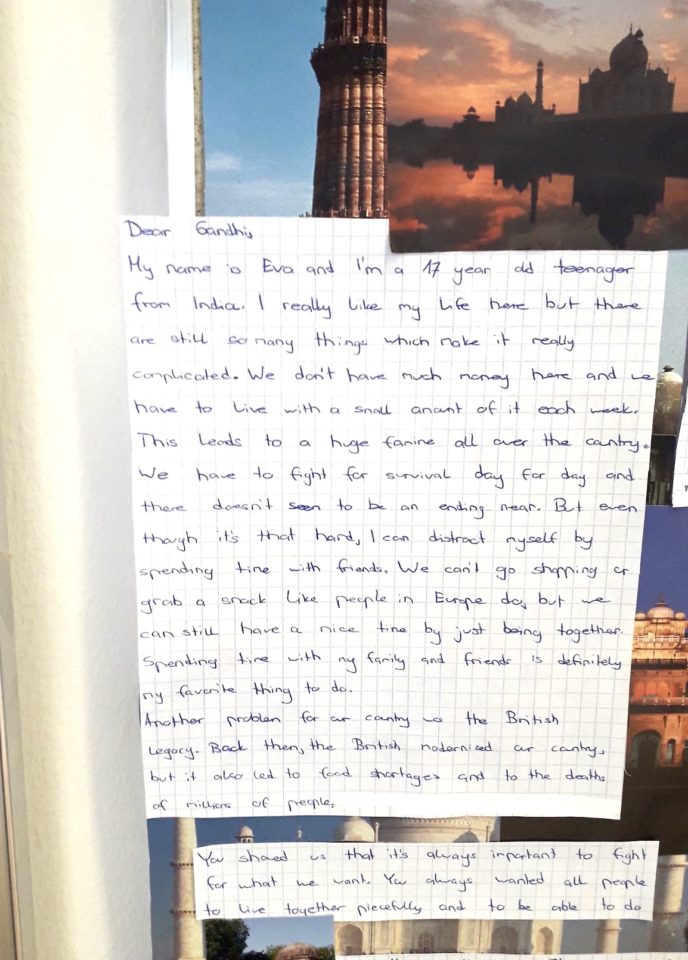 Dear Gandhi,
My name is Eva and I'm a 17 year old teenager
from India. I really like my life here but there
are still so many things which make it really
complicated. We don't have much money here and we
have to live with a small amount of it each week.
This leads to a huge famine all over the country.
We have to fight for survival day for day and
there doesn't seem to be an ending near. But even
though it's that hard, I can distract myself by
spending time with friends. We can't go shopping or
grab a snack like people in Europe do, but we
can still have a nice time by just being together.
Spending time with my family and friends is definitely
my favorite thing to do.
Another problem for our country was the British
legacy. Back then, the British modernized our country,
but it also led to food shortages and to the deaths
of millions of people.
You showed us that it's always important to fight
for what we want. You always wanted all people
to live together piecefully and to be able to do